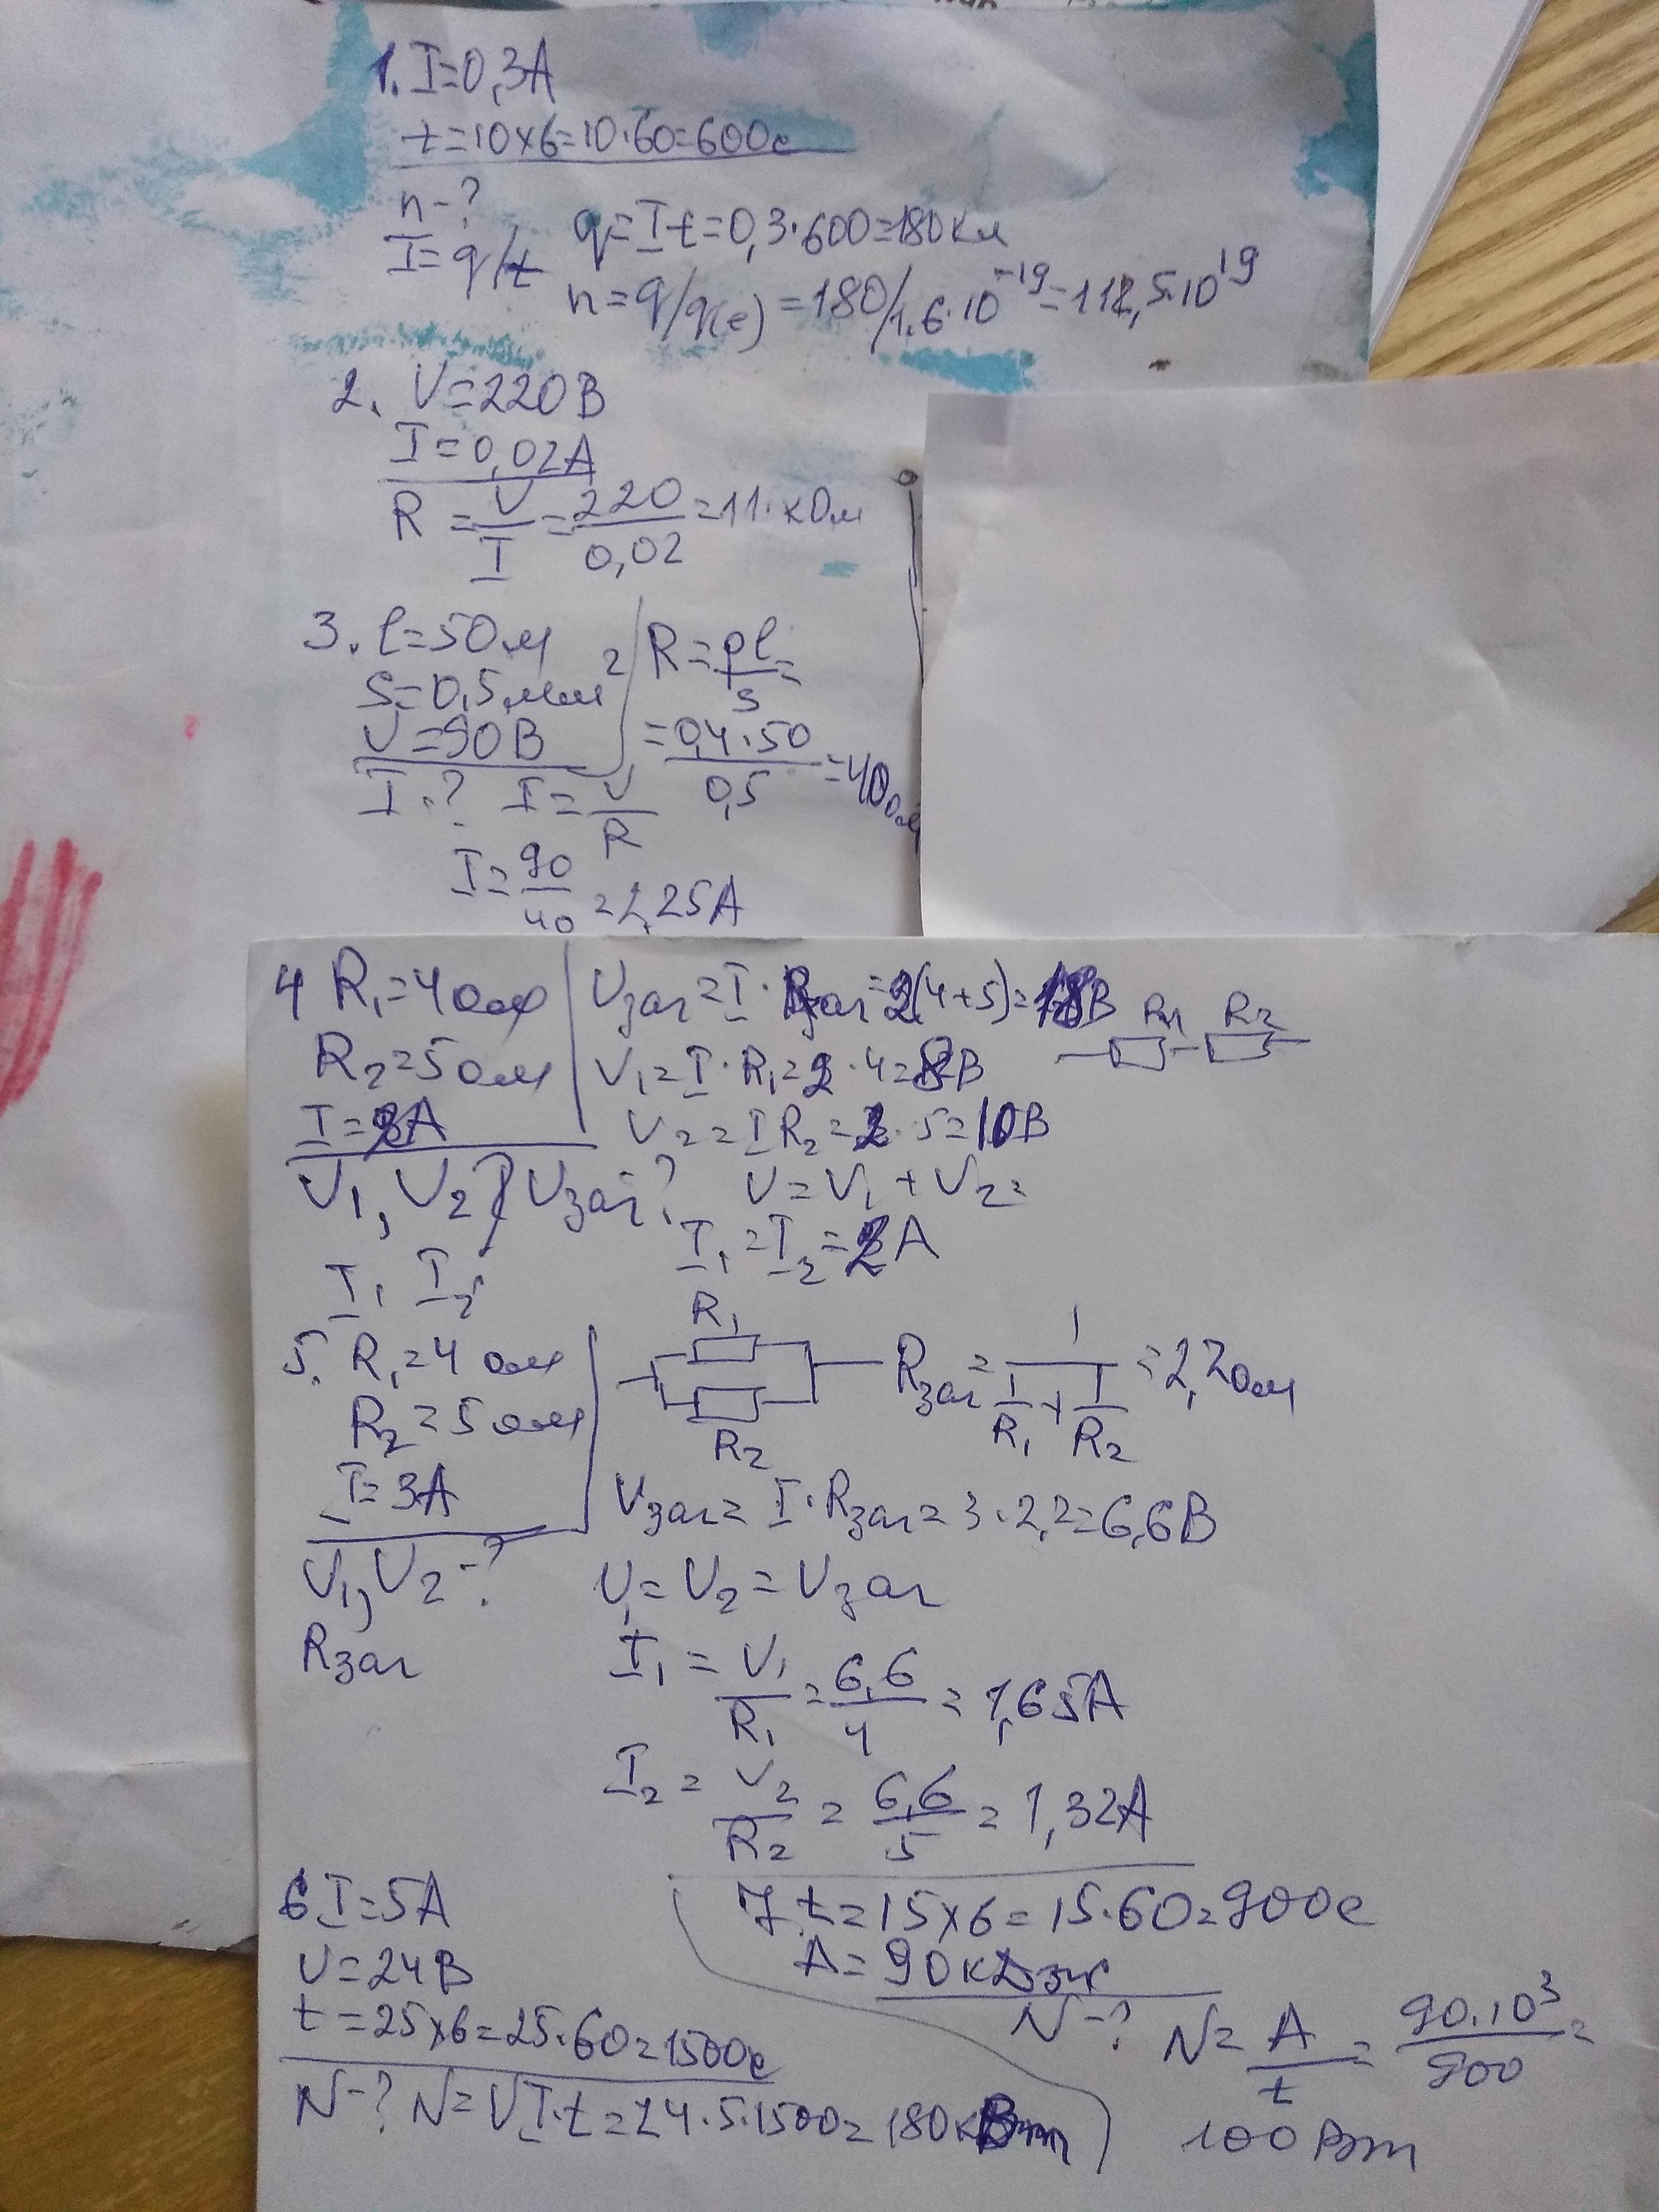 1. I=0,3A
t=10хв=10·60=600с
n-?
I=q/t q=It=0,3·600=180Кл
n=q/q(e)=180/1,6·10⁻¹⁹=112,5·10¹⁹
2. U=220В
I=0,02А
R=U/I=220/0,02=11·кОм
3. l=50м
S=0,5мм²
U=90В
R=ρl/S=
=0,4·50/0,5=40Ом
I-? I=U/R
I=90/40=2,25А
4 R₁=4Ом
R₂=5Ом
I=2А
U₁, U₂, Uзаг-?
I₁ I₂
Uзаг=I·Rзаг=2(4+5)=18В
R₁ R₂
U₁=I·R₁=2·4=8В
U₂=IR₂=2·5=10В
U=U₁+U₂=
I₁=I₂=2А
5. R₁=4Ом
R₂=5Ом
I=3А
U₁, U₂-?
Rзаг
R₁
R₂
Rзаг=1/(1/R₁+1/R₂)=2,2Ом
Uзаг=I·Rзаг=3·2,2=6,6В
U₁=U₂=Uзаг
I₁=U₁/R₁=6,6/4=1,65А
I₂=U₂/R₂=6,6/5=1,32А
6 I=5А
U=24В
t=25хв=25·60=1500с
N-? N=UI·t=24·5·1500=180кВт
7 t=15хв=15·60=900с
A=90кДж
N-? N=A/t=90·10³/900=
100Вт